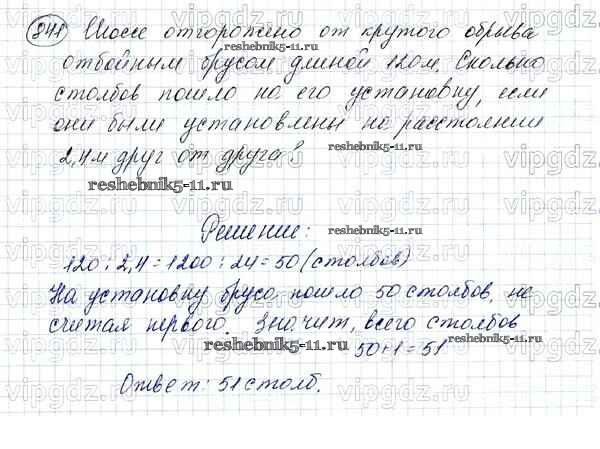 841 Шоссе отгорожено от крутого обрыва
reshebnik5-11.ru
отбойным брусом длиной 120м. Сколько
столбов пошло на его установку, если
они были установлены на расстоянии
reshebnik5-11.ru
2,4м друг от друга?
reshebnik5-11.ru
Решение:
reshebnik5-11.ru
120 : 2,4 = 1200 : 24 = 50 (столбов)
На установку бруса пошло 50 столбов, не
считая первого. Значит, всего столбов
reshebnik5-11.ru
50+1=51
Ответ: 51 столб.
vipgdz.com